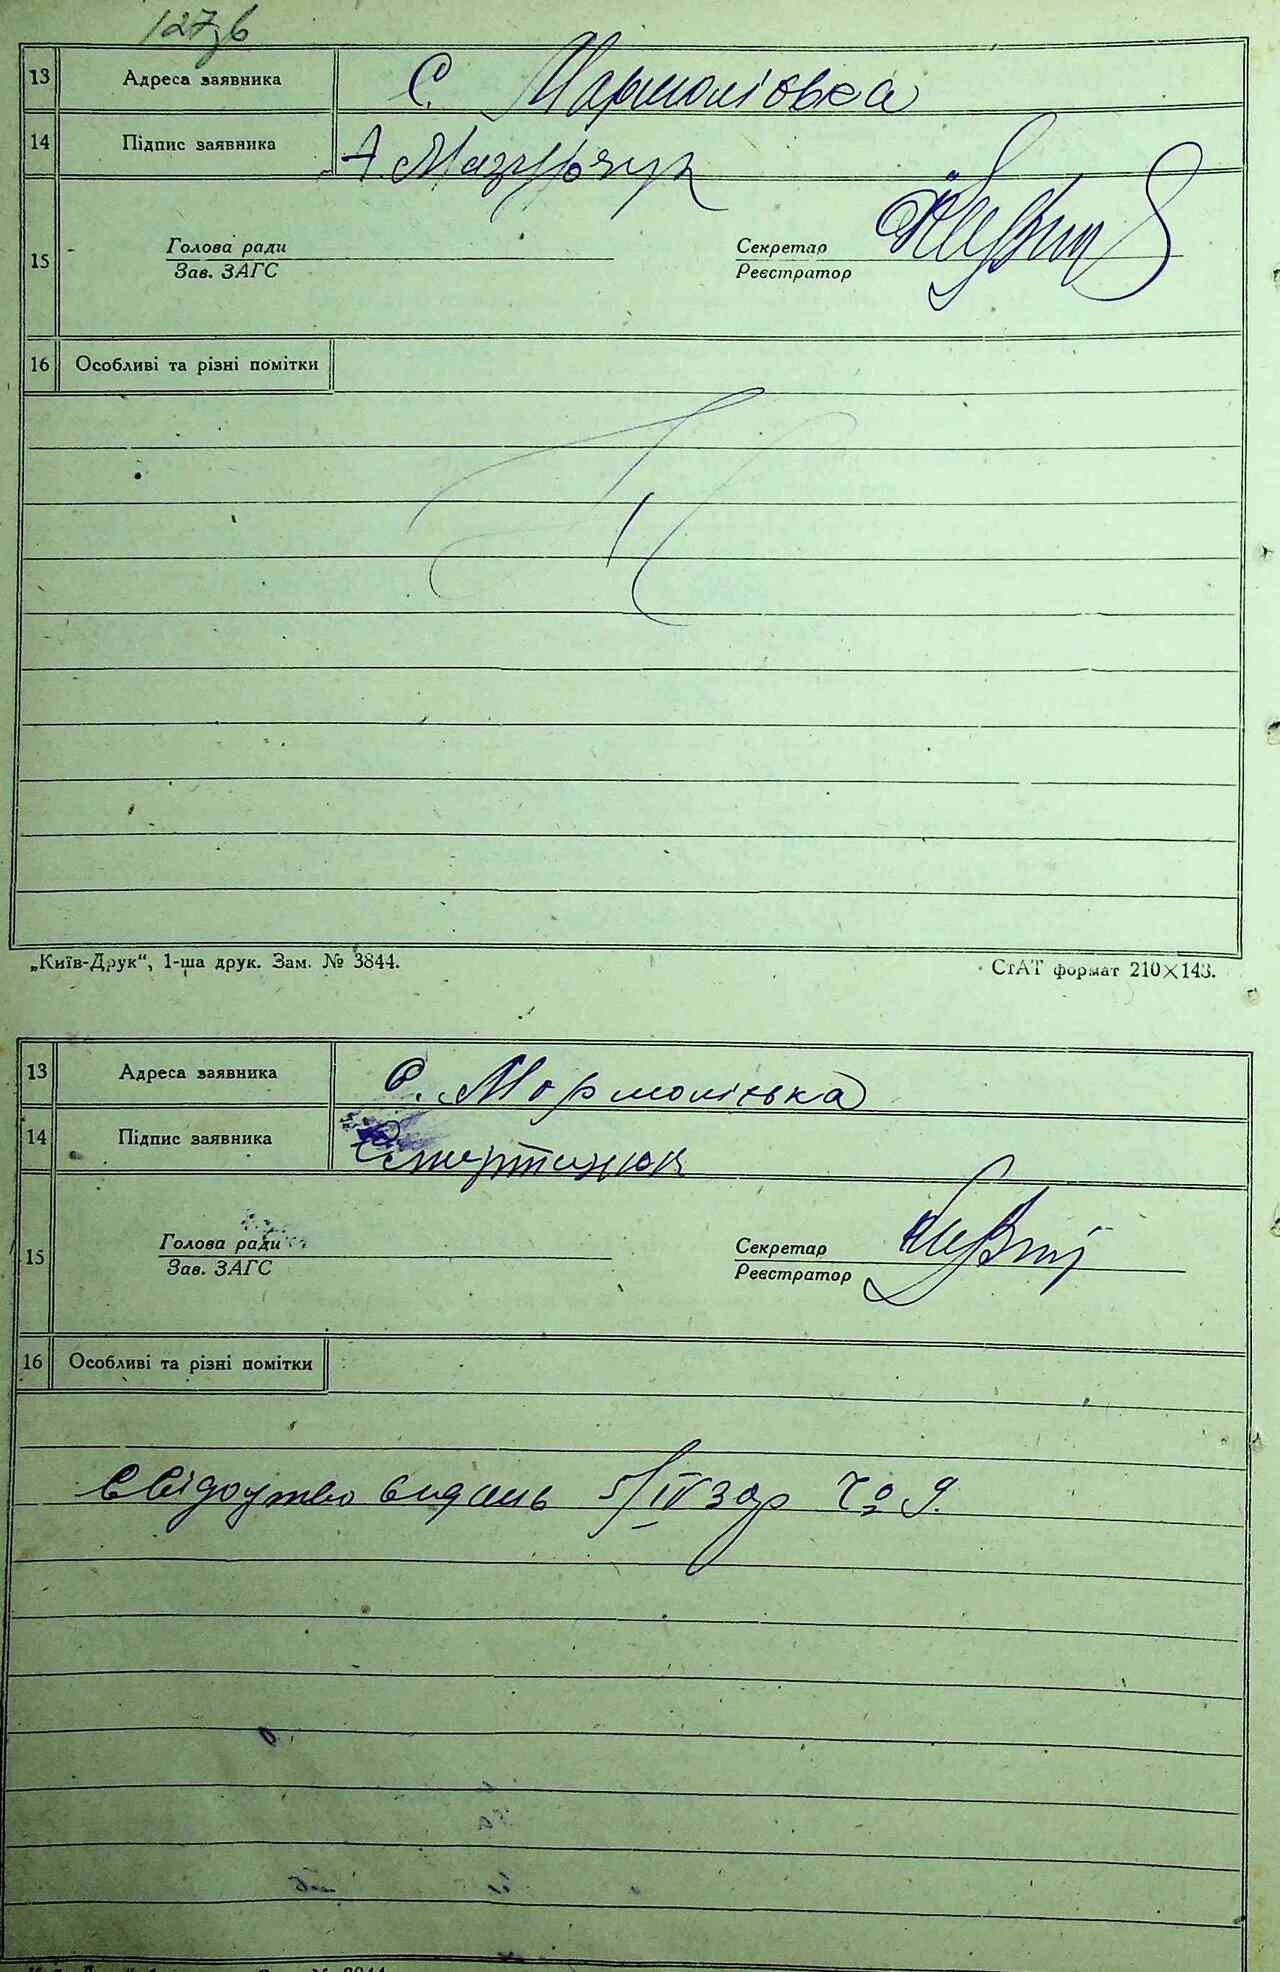 127зв
13 Адреса заявника С. Мармоліовка
14 Підпис заявника А. Мазурчук
15 Голова ради Секретар
Зав. ЗАГС Реєстратор
16 Особливі та різні помітки
„Київ-Друк“, 1-ша друк. Зам. № 3844. СтАТ формат 210×143.
13 Адреса заявника С. Мормоліська
14 Підпис заявника Смертинюк
15 Голова ради Секретар
Зав. ЗАГС Реєстратор
16 Особливі та різні помітки
Свідоцтво видань 5/IV 32р